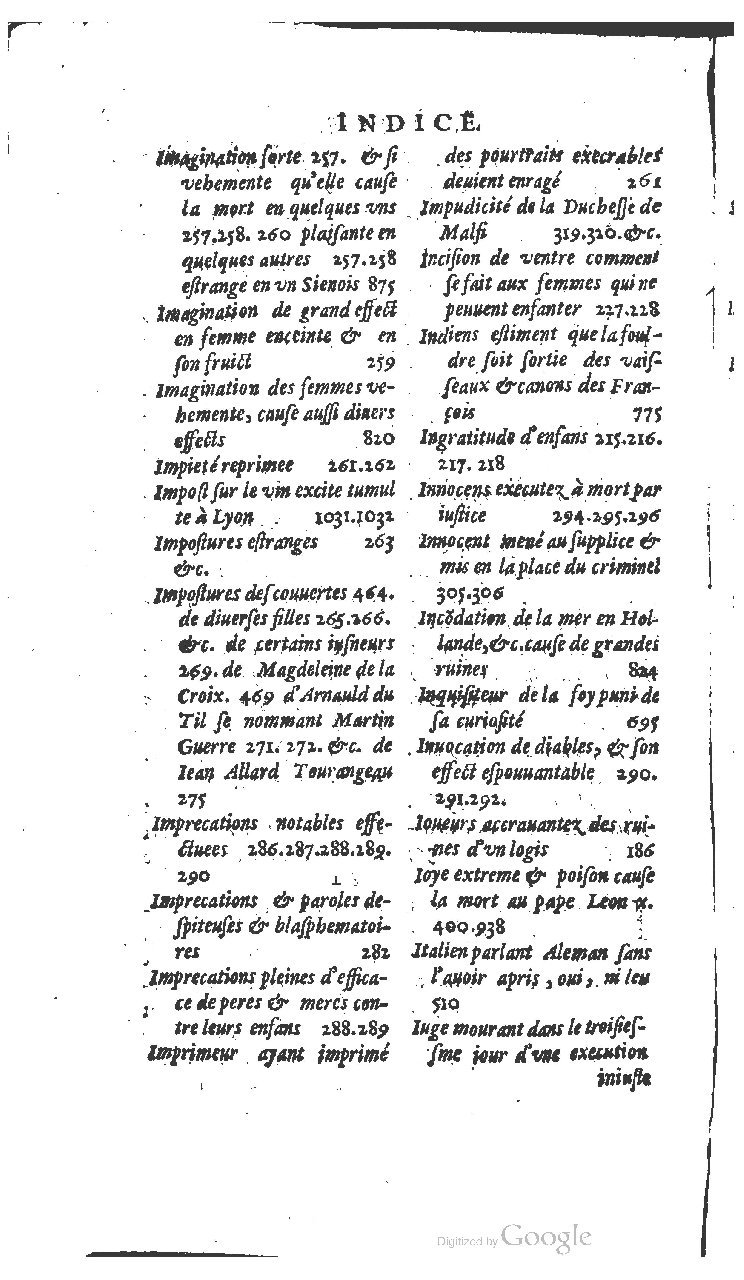 INDICE
Imagination forte 257. & si
vehemente qu'elle cause
la mort en quelques vns
257.258. 260 plaisante en
quelques autres 257.258
estrange en vn Sienois 875
Imagination de grand effect
en femme enceinte & en
son fruict 259
Imagination des femmes ve-
hemente, cause aussi diuers
effects 820
Impieté reprimee 261.262
Impost sur le vin excite tumul
te à Lyon 1031.1032
Impostures estranges 263
&c.
Impostures descouuertes 464.
de diuerses filles 265.266.
&c. de certains
269. de Magdeleine de la
Croix. 469 d'Arnauld du
Til se nommant Martin
Guerre 271. 272. &c. de
Iean Allard Tourangeau
275
Imprecations notables effe-
ctuees 286.287.288.289.
290
Imprecations & paroles de-
spiteuses & blasphematoi-
res 282
Imprecations pleines d'effica-
ce de peres & meres con-
tre leurs enfans 288.289
Imprimeur ayant imprimé
des pourtraits execrables
deuient enragé 261
Impudicité de la Duchesse de
Malfi 319.320.&c.
Incision de ventre comment
se fait aux femmes qui ne
peuuent enfanter 227.228
Indiens estiment que la foul-
dre soit sortie des vais-
seaux & canons des Fran-
çois 775
Ingratitude d'enfans 215.216.
217. 218
Innocens executez à mort par
iustice 294.295.296
Innocent mené au supplice &
mis en la place du criminel
305.306
Inõdation de la mer en Hol-
lande, &c. cause de grandes
ruines 824
Inquisiteur de la foy puni de
sa curiosité 695
Inuocation de diables, & son
effect espouuantable 290.
291.292.
Ioueurs accrauantez des rui-
nes d'vn logis 186
Ioye extreme & poison cause
la mort au pape Leon x.
400.938
Italien parlant Aleman sans
l'auoir apris, oui, ni leu
510
Iuge mourant dans le troisies-
sme iour d'vne execution
iniuste
Digitized by Google